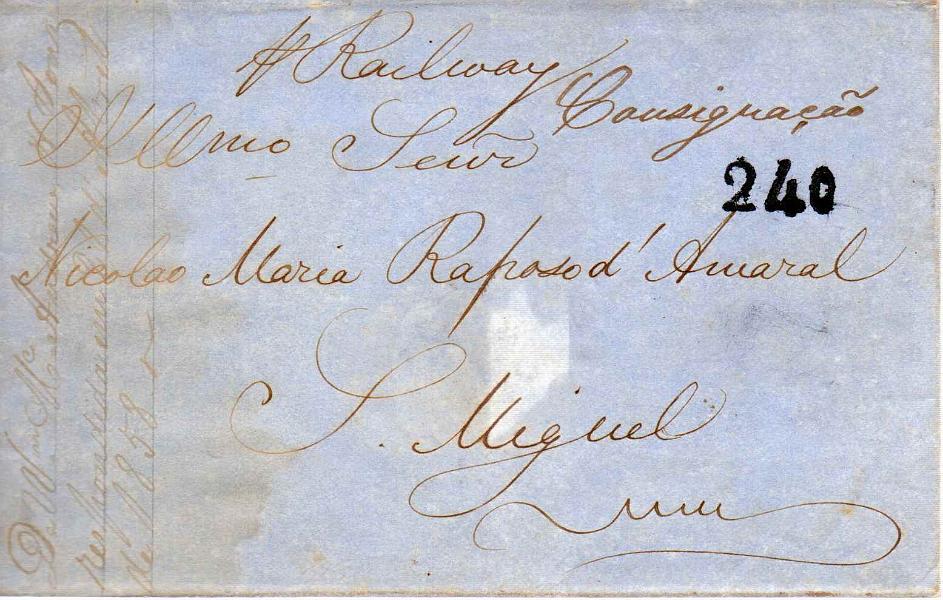 p Railway
Consignação
Illmo Senr
240
Nicolao Maria Raposo d'Amaral
S. Miguel
respondida em
de 1858